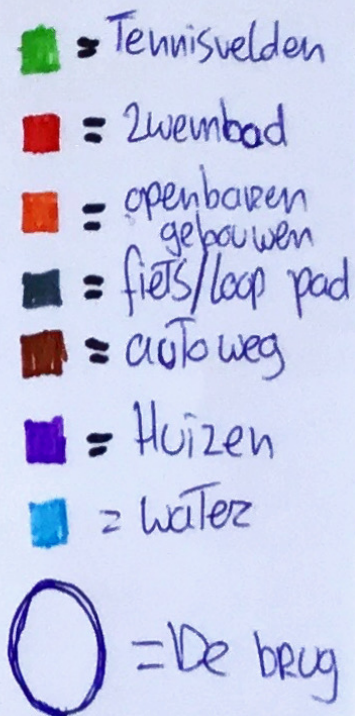 = Tennisvelden
= Zwembad
= openbaren
gebouwen
= fiets/loop pad
= autoweg
= Huizen
= water
= De brug